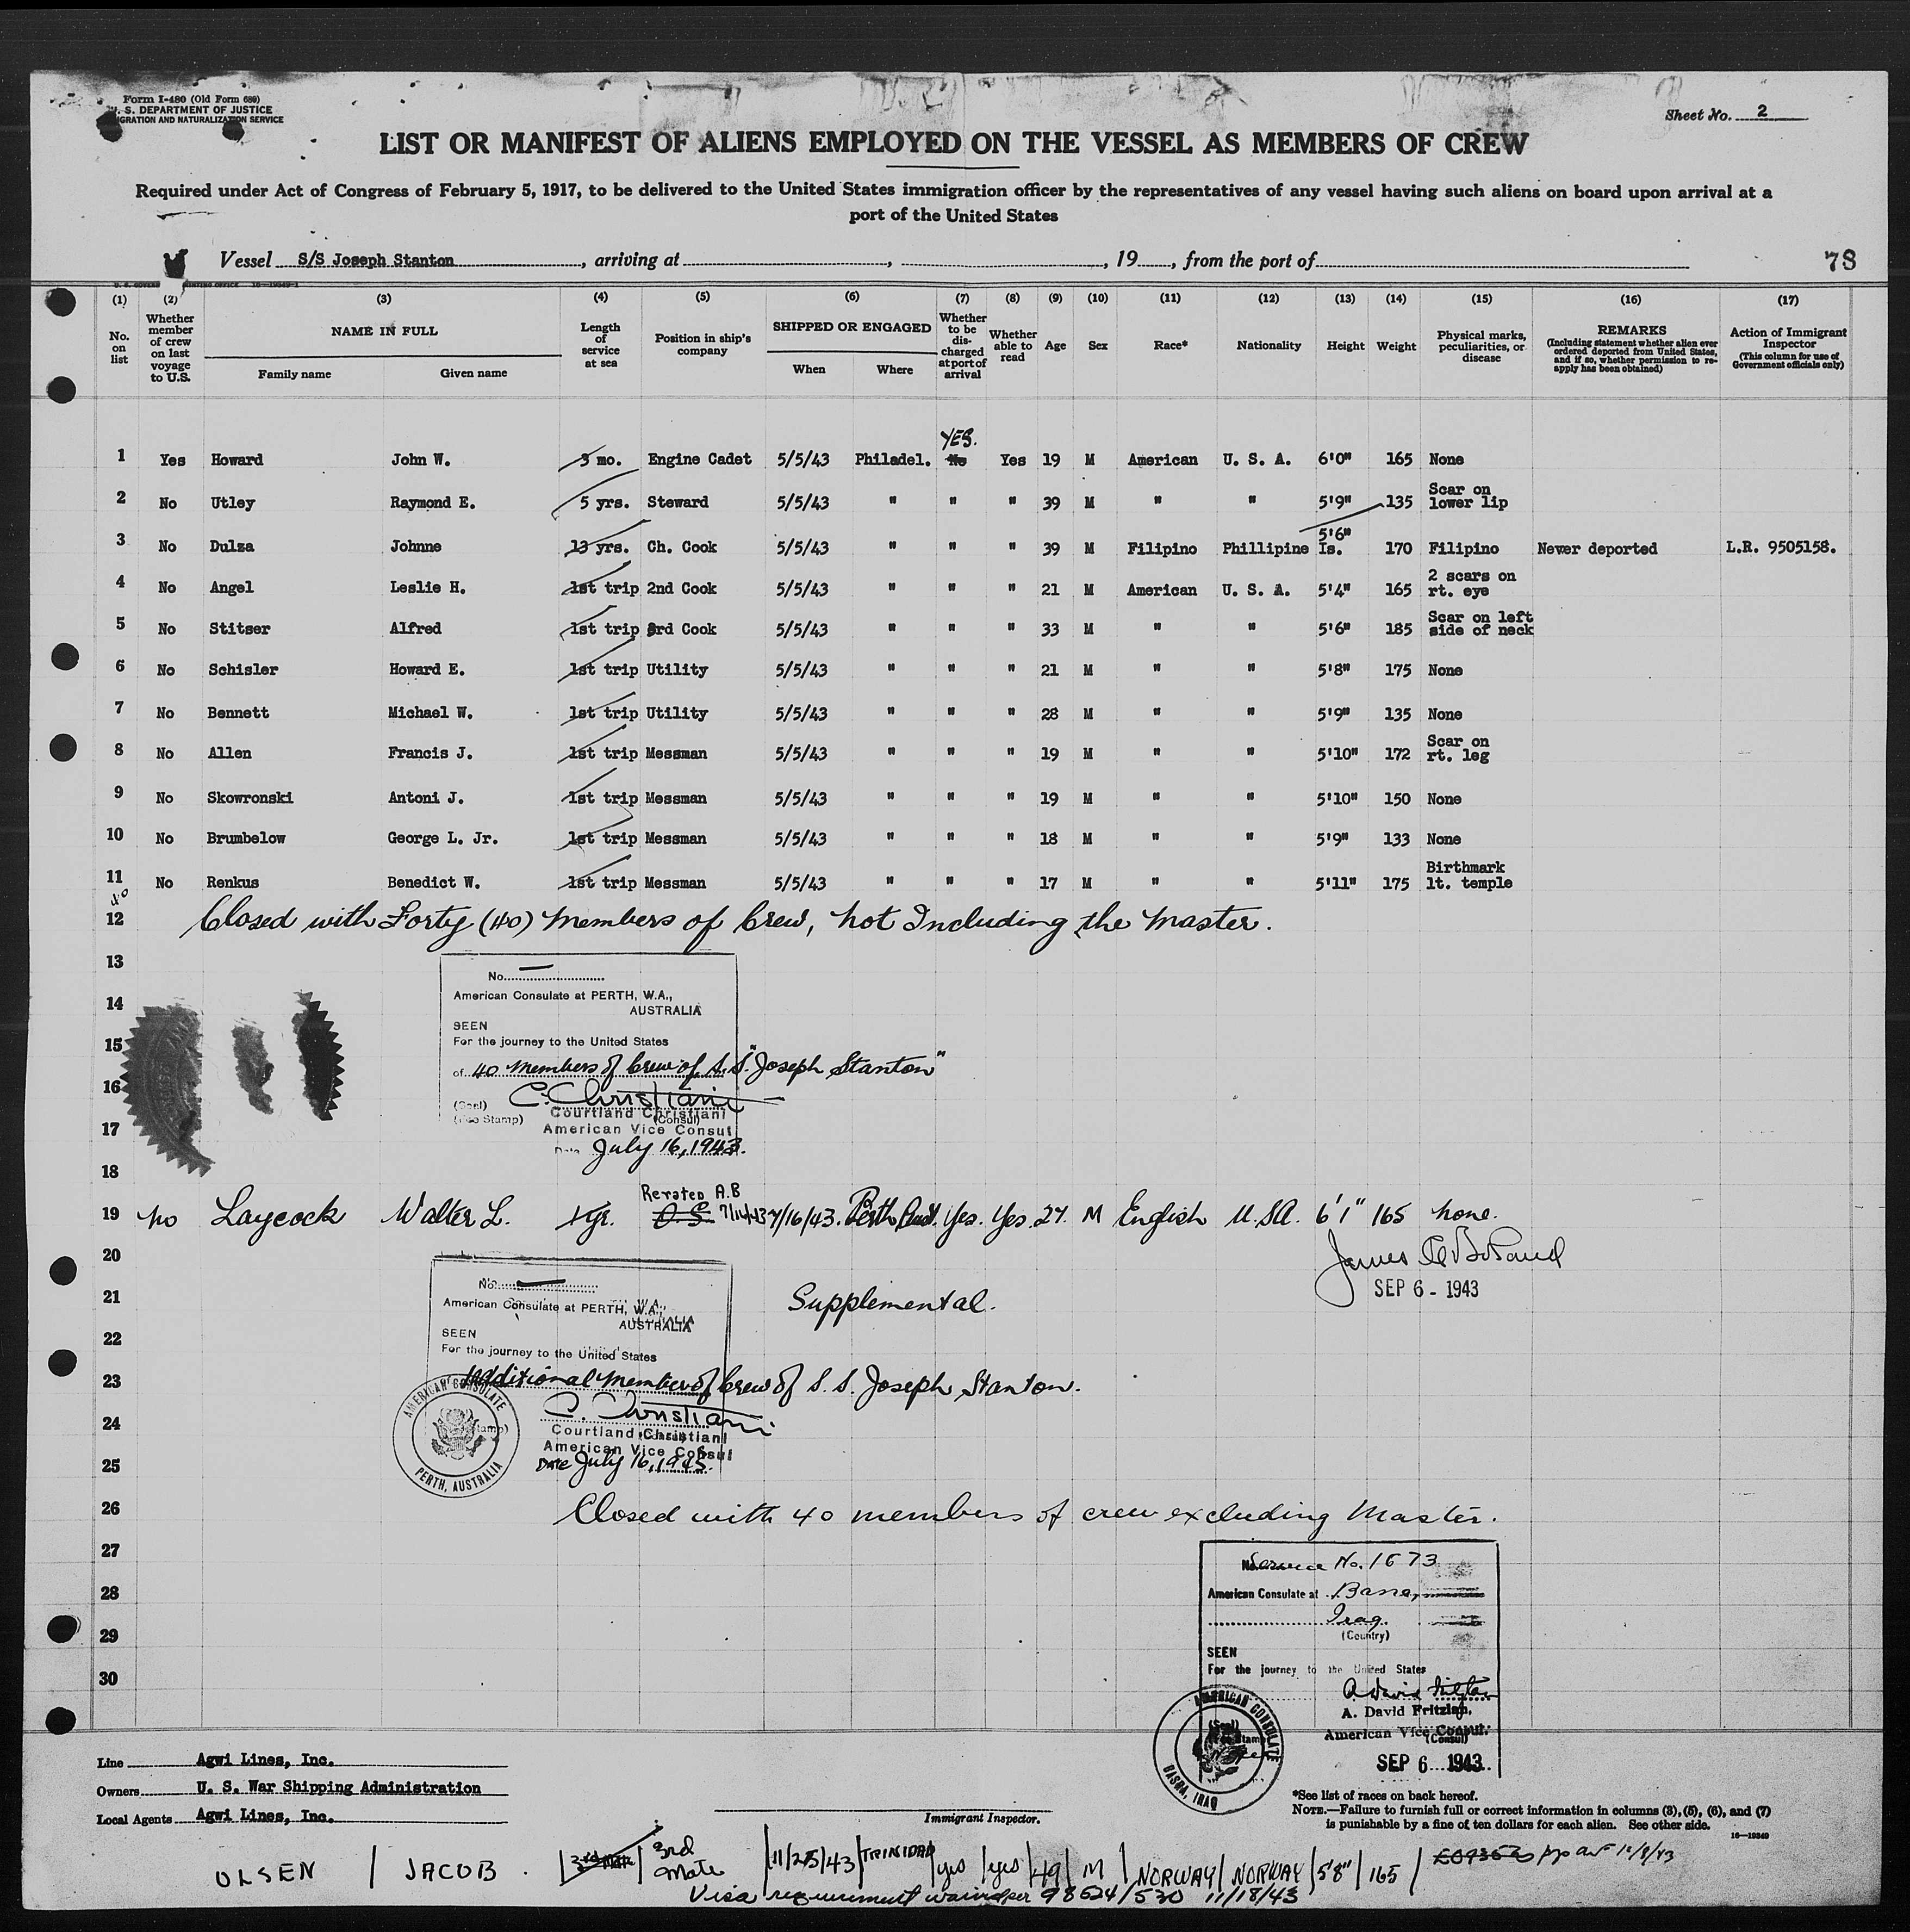 Form I-480 (Old Form 689)
U. S. DEPARTMENT OF JUSTICE
IMMIGRATION AND NATURALIZATION SERVICE
Sheet No. 2
LIST OR MANIFEST OF ALIENS EMPLOYED ON THE VESSEL AS MEMBERS OF CREW
Required under Act of Congress of February 5, 1917, to be delivered to the United States immigration officer by the representatives of any vessel having such aliens on board upon arrival at a
port of the United States
Vessel S/S Joseph Stanton, arriving at , , 19 , from the port of
78
(1) No. on list
(2) Whether member of crew on last voyage to U.S.
(3) NAME IN FULL Family name Given name
(4) Length of service at sea
(5) Position in ship's company
(6) SHIPPED OR ENGAGED When Where
(7) Whether to be discharged at port of arrival
(8) Whether able to read
(9) Age
(10) Sex
(11) Race*
(12) Nationality
(13) Height
(14) Weight
(15) Physical marks, peculiarities, or disease
(16) REMARKS (Including statement whether alien ever ordered deported from United States, and if so, whether permission to reapply has been obtained)
(17) Action of Immigrant Inspector (This column for use of Government officials only)
YES.
1 Yes Howard John W. 3 mo. Engine Cadet 5/5/43 Philadel. No Yes 19 M American U. S. A. 6'0" 165 None
2 No Utley Raymond E. 5 yrs. Steward 5/5/43 " " " 39 M " " 5'9" 135 Scar on lower lip
3 No Dulza Johnne 13 yrs. Ch. Cook 5/5/43 " " " 39 M Filipino Phillipine Is. 5'6" 170 Filipino Never deported L.R. 9505158.
4 No Angel Leslie H. 1st trip 2nd Cook 5/5/43 " " " 21 M American U. S. A. 5'4" 165 2 scars on rt. eye
5 No Stitser Alfred 1st trip 3rd Cook 5/5/43 " " " 33 M " " 5'6" 185 Scar on left side of neck
6 No Schisler Howard E. 1st trip Utility 5/5/43 " " " 21 M " " 5'8" 175 None
7 No Bennett Michael W. 1st trip Utility 5/5/43 " " " 28 M " " 5'9" 135 None
8 No Allen Francis J. 1st trip Messman 5/5/43 " " " 19 M " " 5'10" 172 Scar on rt. leg
9 No Skowronski Antoni J. 1st trip Messman 5/5/43 " " " 19 M " " 5'10" 150 None
10 No Brumbelow George L. Jr. 1st trip Messman 5/5/43 " " " 18 M " " 5'9" 133 None
11 No Renkus Benedict W. 1st trip Messman 5/5/43 " " " 17 M " " 5'11" 175 Birthmark lt. temple
40
12 Closed with Forty (40) Members of Crew, not Including the Master.
13
No.
14 American Consulate at PERTH, W.A.,
AUSTRALIA
SEEN
15 For the journey to the United States
of 40 Members of Crew of S.S. "Joseph Stanton"
16 C. Christiani
(Seal) Courtland Christiani
(Fee Stamp) (Consul)
17 American Vice Consul
Date July 16, 1943.
18
Rerated A.B
19 No Laycock Walter L. 1 yr. O.S. 7/16/43 7/16/43. Perth Aust. Yes. Yes. 27. M English U.S.A. 6'1" 165 none.
20
SEP 6 - 1943
No.
21 American Consulate at PERTH, W.A., Supplemental.
AUSTRALIA
22 SEEN
For the journey to the United States
23 Additional Member of Crew of S.S. Joseph Stanton.
24 C. Christiani
Courtland Christiani
American Vice Consul
25 Date July 16, 1943.
AMERICAN CONSULATE PERTH, AUSTRALIA
26 Closed with 40 members of crew excluding Master.
27
No. Service No. 1673
28 American Consulate at Basra,
Iraq
29 (Country)
SEEN
30 For the journey to the United States
A. David Fritzlan,
American Vice Consul.
(Consul)
SEP 6 1943
AMERICAN CONSULATE BASRA, IRAQ
(Seal)
Line Agwi Lines, Inc.
Owners U. S. War Shipping Administration
Local Agents Agwi Lines, Inc.
Immigrant Inspector.
*See list of races on back hereof.
NOTE.—Failure to furnish full or correct information in columns (3), (5), (6), and (7)
is punishable by a fine of ten dollars for each alien. See other side.
16—19349
OLSEN JACOB. 3rd Mate 3rd Mate 11/25/43 TRINIDAD yes yes 49 M NORWAY NORWAY 5'8" 165
Visa requirement waived per 98524/530 11/18/43